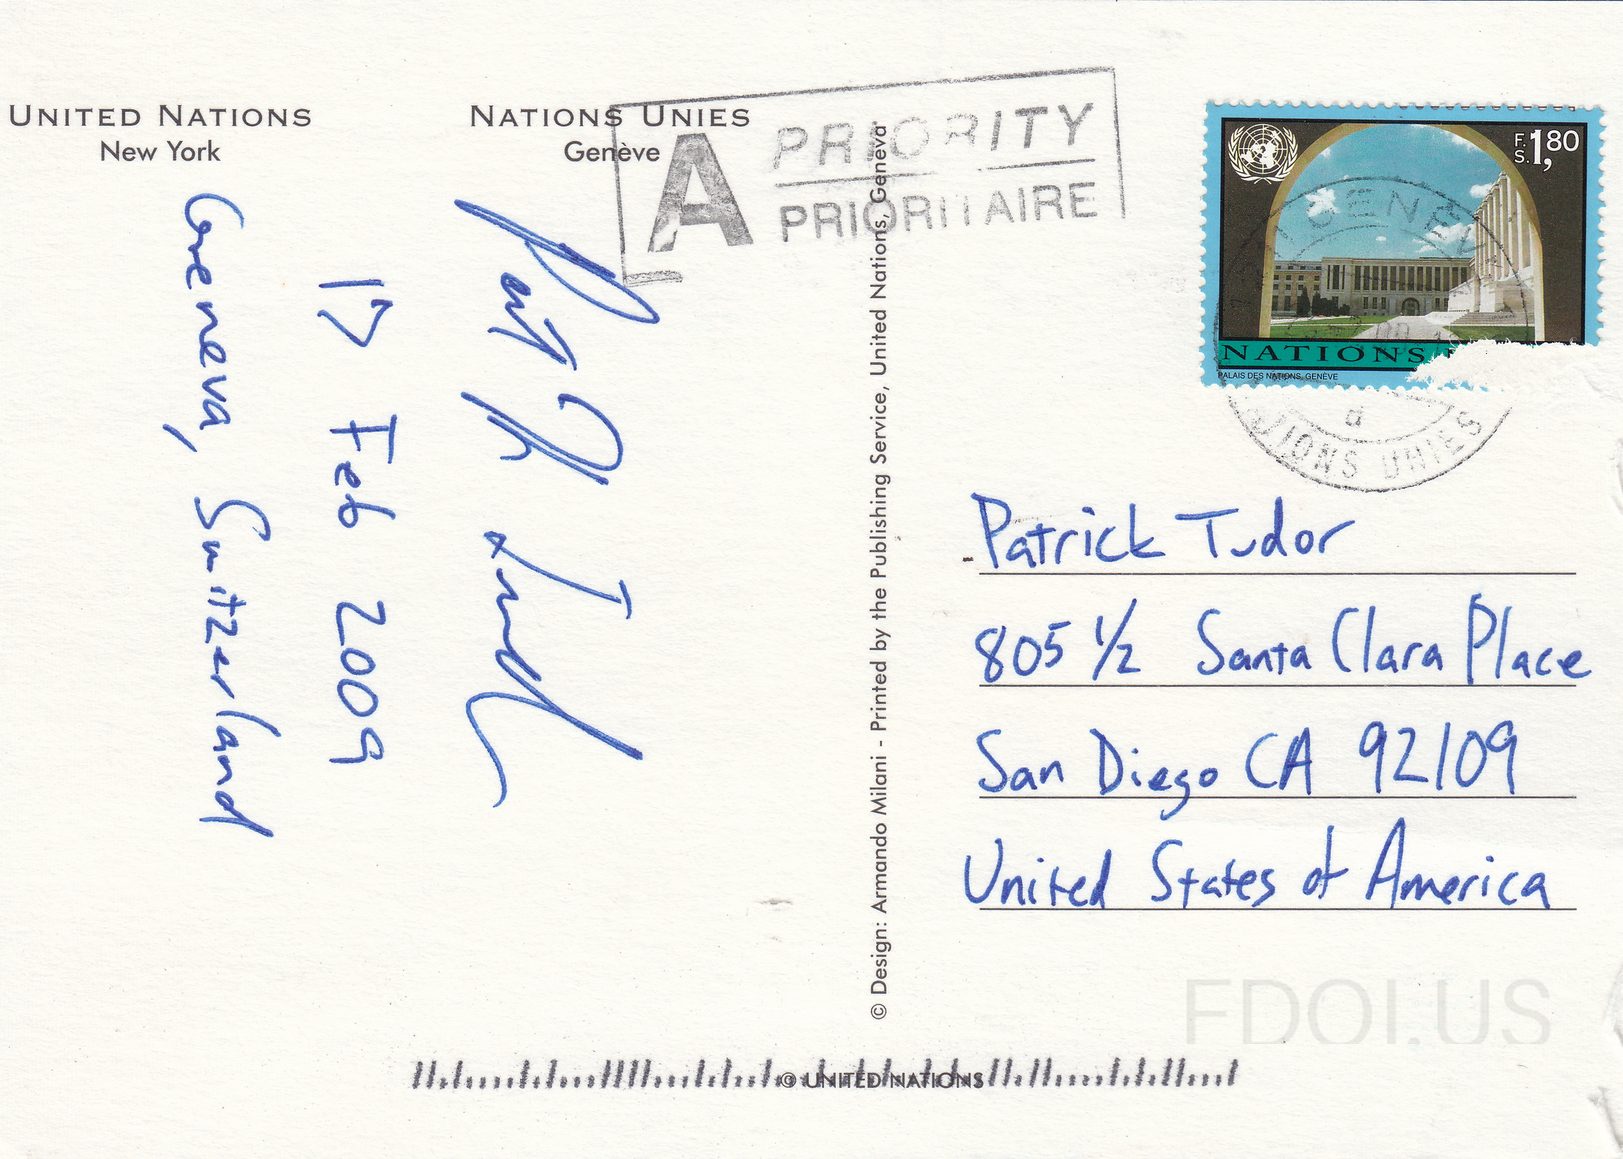 UNITED NATIONS
New York
NATIONS UNIES
Genève
A PRIORITY
PRIORITAIRE
F.S. 1,80
NATIONS
PALAIS DES NATIONS, GENÈVE
GENÈVE
NATIONS UNIES
17 Feb 2009
Geneva, Switzerland
© Design: Armando Milani - Printed by the Publishing Service, United Nations, Geneva
Patrick Tudor
805 1/2 Santa Clara Place
San Diego CA 92109
United States of America
FDOI.US
© UNITED NATIONS